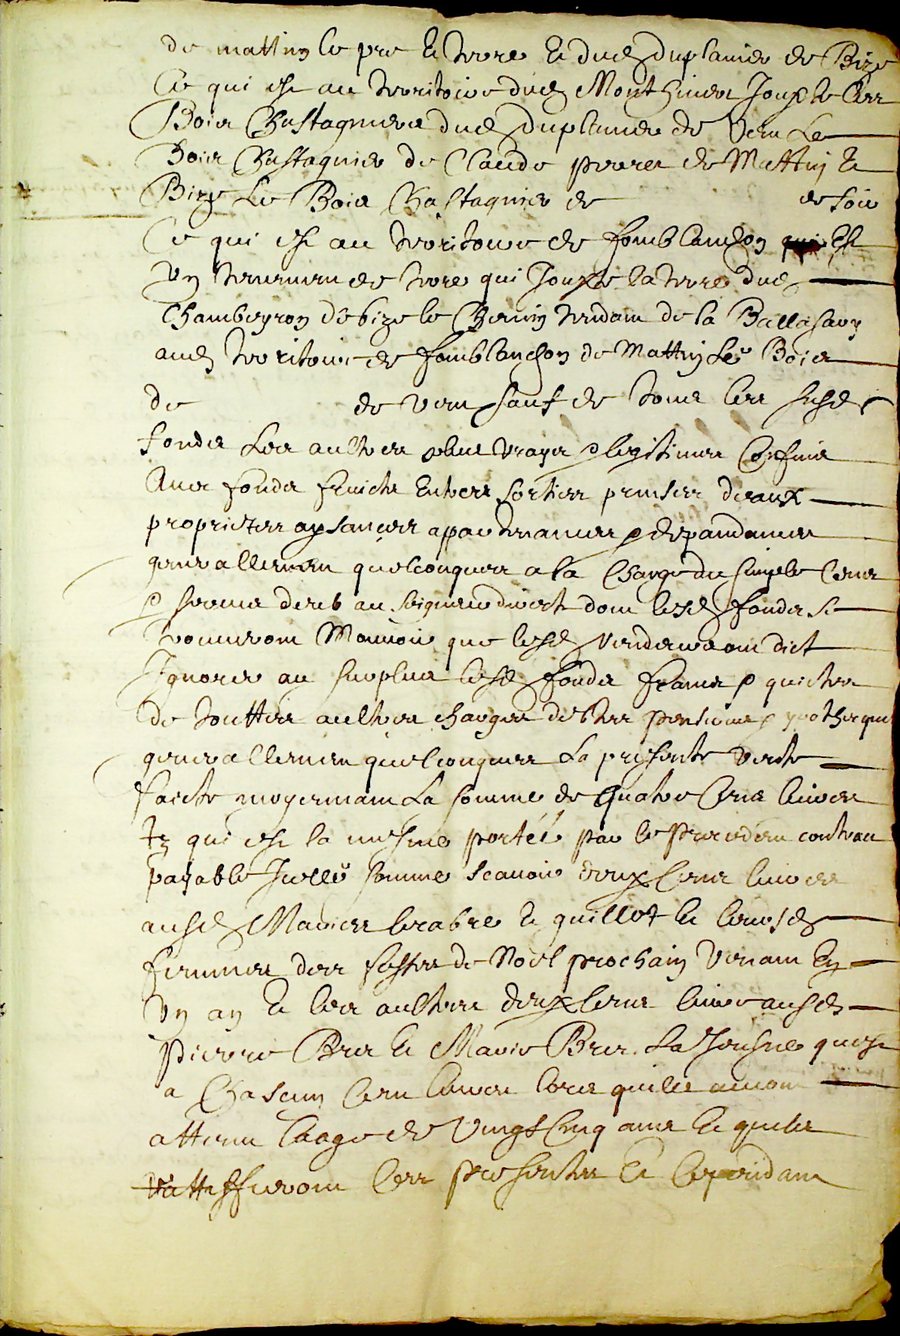 de mattin le pré et terre et dud duplanier de Bize
Ce qui est au territoire dud Monthiner Jouxte les
Boix Chastagniere dud duplanier de vent Le
Boix Chastagnier de Claude de Mattin et
Bize Le Boix Chastagnier de de soir
Ce qui est au territoire de fontblanchon est
un tenement de terre qui Jouxte la terre dud
Chambeyron de bize le Chemin tendant de la
aud territoire de fontblanchon de Mattin Les Boix
de de vent sauf de tous les susd
fonds Les aultres plus vrays & legitimes Confins
Avec fonds fruicts Entrees sorties prinses deaux
proprietes aysances appartenances & despandances
generallement quelconques a la Charge du simple Cens
& servis deub au seigneur direct dont lesd fonds se
trouveront Mouvoir que lesd vendeurs ont dict
Ignorer au surplus lesd fonds francs & quictes
de touttes aultres charges debtes pensions & ypotheques
generallement quelconques La presente vente
faicte moyennant La somme de quatre Cens livres
tz qui est la mesme portée par le precedent contrau
payable Icelle somme scavoir deux Cens livres
ausd Maries & quillot et leursd
femmes des festes de Noel prochain venant En
un an et les aultres deux Cens livres ausd
Pierre et Marie La Jeusne quest
a Chascun Cent livres lors quils auront
attaint Laage de vingt Cinq ans et quils
ces presentes et Cependant